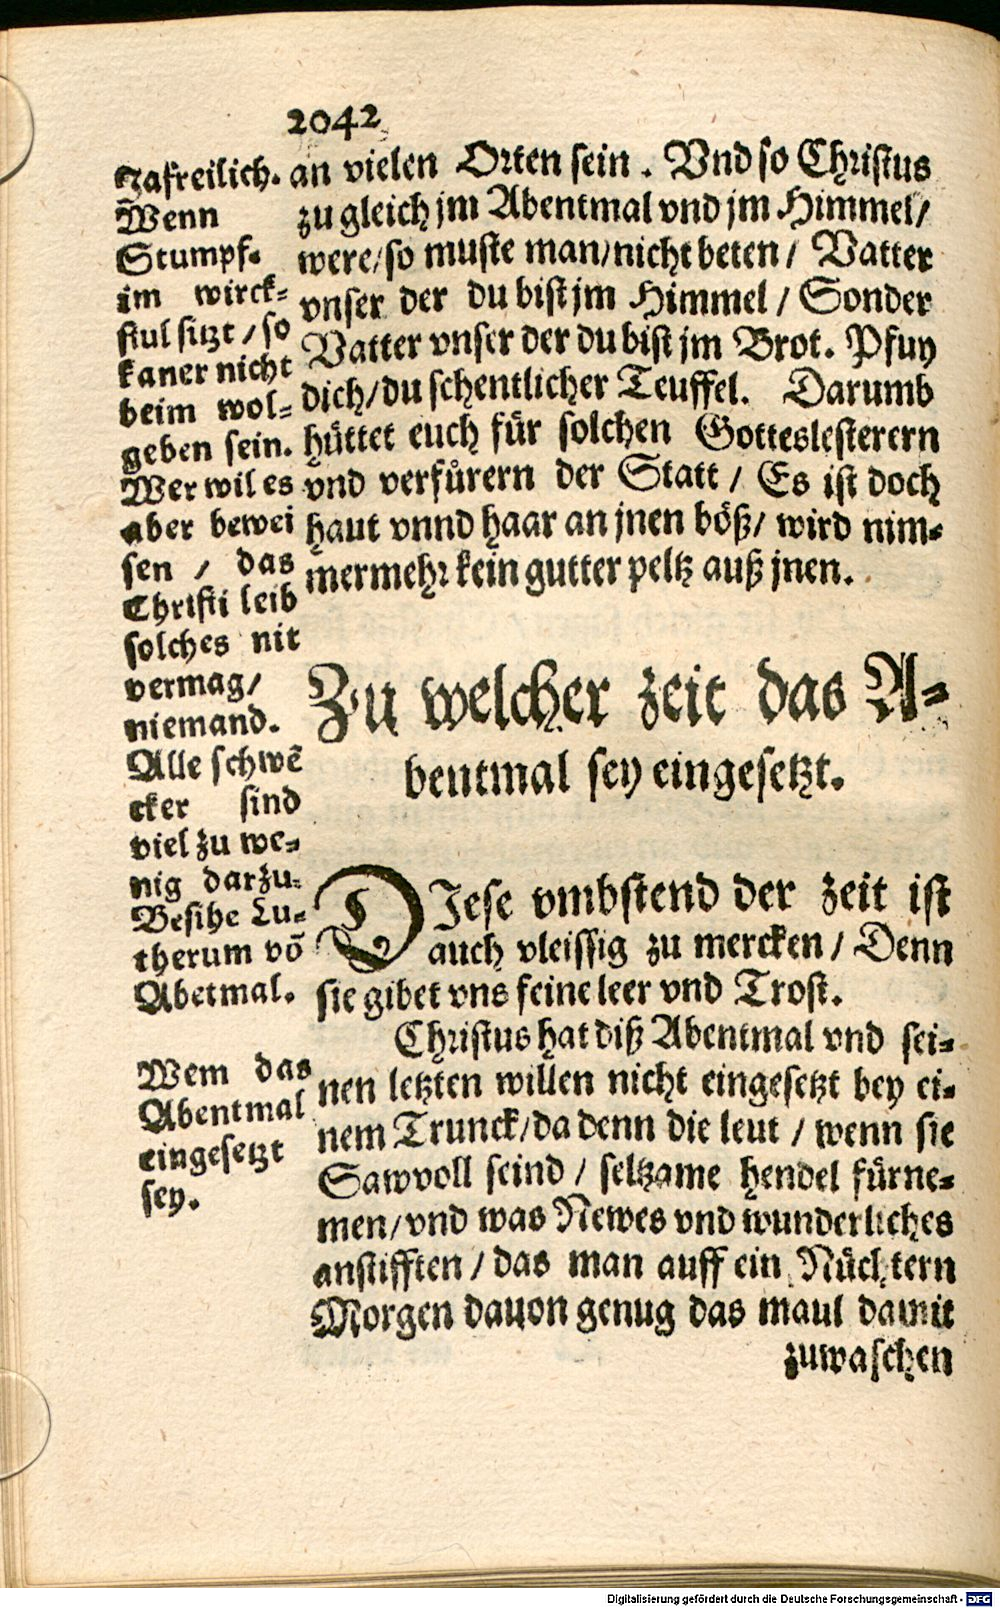 2042
an vielen Orten sein. Vnd so Christus
zu gleich jm Abentmal vnd jm Himmel/
were/so muste man/nicht beten/ Vatter
vnser der du bist jm Himmel / Sonder
Vatter vnser der du bist jm Brot. Pfuy
dich/du schentlicher Teuffel. Darumb
hüttet euch für solchen Gotteslesterern
vnd verfürern der Statt / Es ist doch
haut vnnd haar an jnen böß/ wird nim⸗
mermehr kein gutter peltz auß jnen.
Jafreilich.
Wenn
Stumpf.
im wirck⸗
stul sitzt / so
kaner nicht
beim wol⸗
geben sein.
Wer wil es
aber bewei
sen / das
Christi leib
solches nit
vermag/
niemand.
Alle schwē
cker sind
viel zu we⸗
nig darzu.
Besihe Lu⸗
therum vō
Abetmal.
Zu welcher zeit das A⸗
bentmal sey eingesetzt.
DJese vmbstend der zeit ist
auch vleissig zu mercken / Denn
sie gibet vns feine leer vnd Trost.
Christus hat diß Abentmal vnd sei⸗
nen letzten willen nicht eingesetzt bey ei⸗
nem Trunck/da denn die leut / wenn sie
Sawvoll seind / seltzame hendel fürne⸗
men/vnd was Newes vnd wunderliches
anstifften / das man auff ein Nüchtern
Morgen dauon genug das maul damit
zuwaschen
Wem das
Abentmal
eingesetzt
sey.
Digitalisierung gefördert durch die Deutsche Forschungsgemeinschaft - DFG